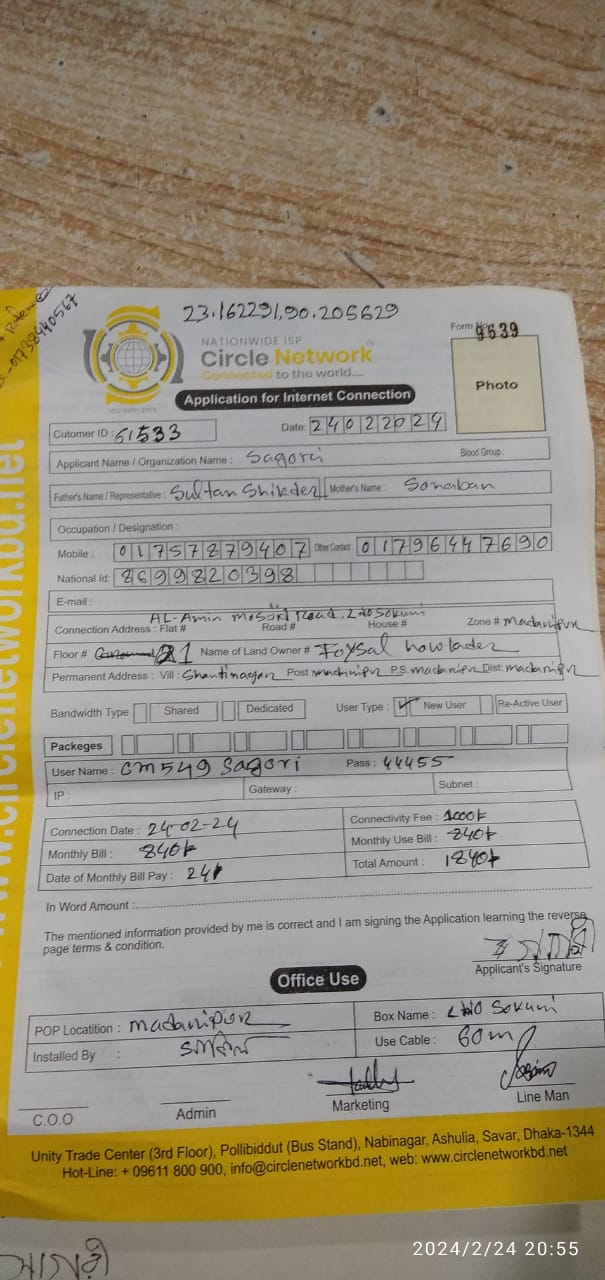 23.162291,90.205629
01738940567
NATIONWIDE ISP
Circle Network
Connected to the world....
ISO 9001:2015
Form No. 9639
Photo
Application for Internet Connection
Cutomer ID : 61533
Date: 24022024
Applicant Name / Organization Name : Sagori
Blood Group :
Father's Name / Representative : Sultan Shikder
Mother's Name : Sonaban
Occupation / Designation :
Mobile : 01757879407
Other Contact 01796447690
National Id: 8699820398
E-mail :
AL-Amin Road,
Connection Address : Flat # Road # House # Zone # Madaripur
Floor # 1 Name of Land Owner # Foysal howlader
Permanent Address : Vill : Shantinagar Post madaripr P.S. madaripr Dist: madaripr
Bandwidth Type Shared Dedicated User Type : ✓ New User Re-Active User
Packeges
User Name : cm549 sagori Pass : 44455
IP : Gateway : Subnet :
Connection Date : 24-02-24
Connectivity Fee : 1000৳
Monthly Bill : 840৳
Monthly Use Bill : 840৳
Date of Monthly Bill Pay : 24
Total Amount : 1840৳
In Word Amount :
The mentioned information provided by me is correct and I am signing the Application learning the reverse
page terms & condition.
Applicant's Signature
Office Use
POP Locatition : madaripur
Box Name : Sokuni
Installed By :
Use Cable : 60m
C.O.O
Admin
Marketing
Line Man
Unity Trade Center (3rd Floor), Pollibiddut (Bus Stand), Nabinagar, Ashulia, Savar, Dhaka-1344
Hot-Line: + 09611 800 900, info@circlenetworkbd.net, web: www.circlenetworkbd.net
www.circlenetworkbd.net
2024/2/24 20:55